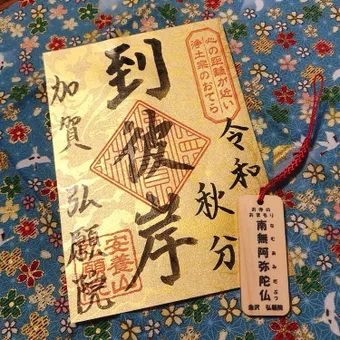 心の距離が近い
浄土宗のおてら
到彼岸
令和
秋分
加賀 弘願院
安養山
お寺の
おまもり
南無阿弥陀仏
なむあみだぶつ
金沢 弘願院